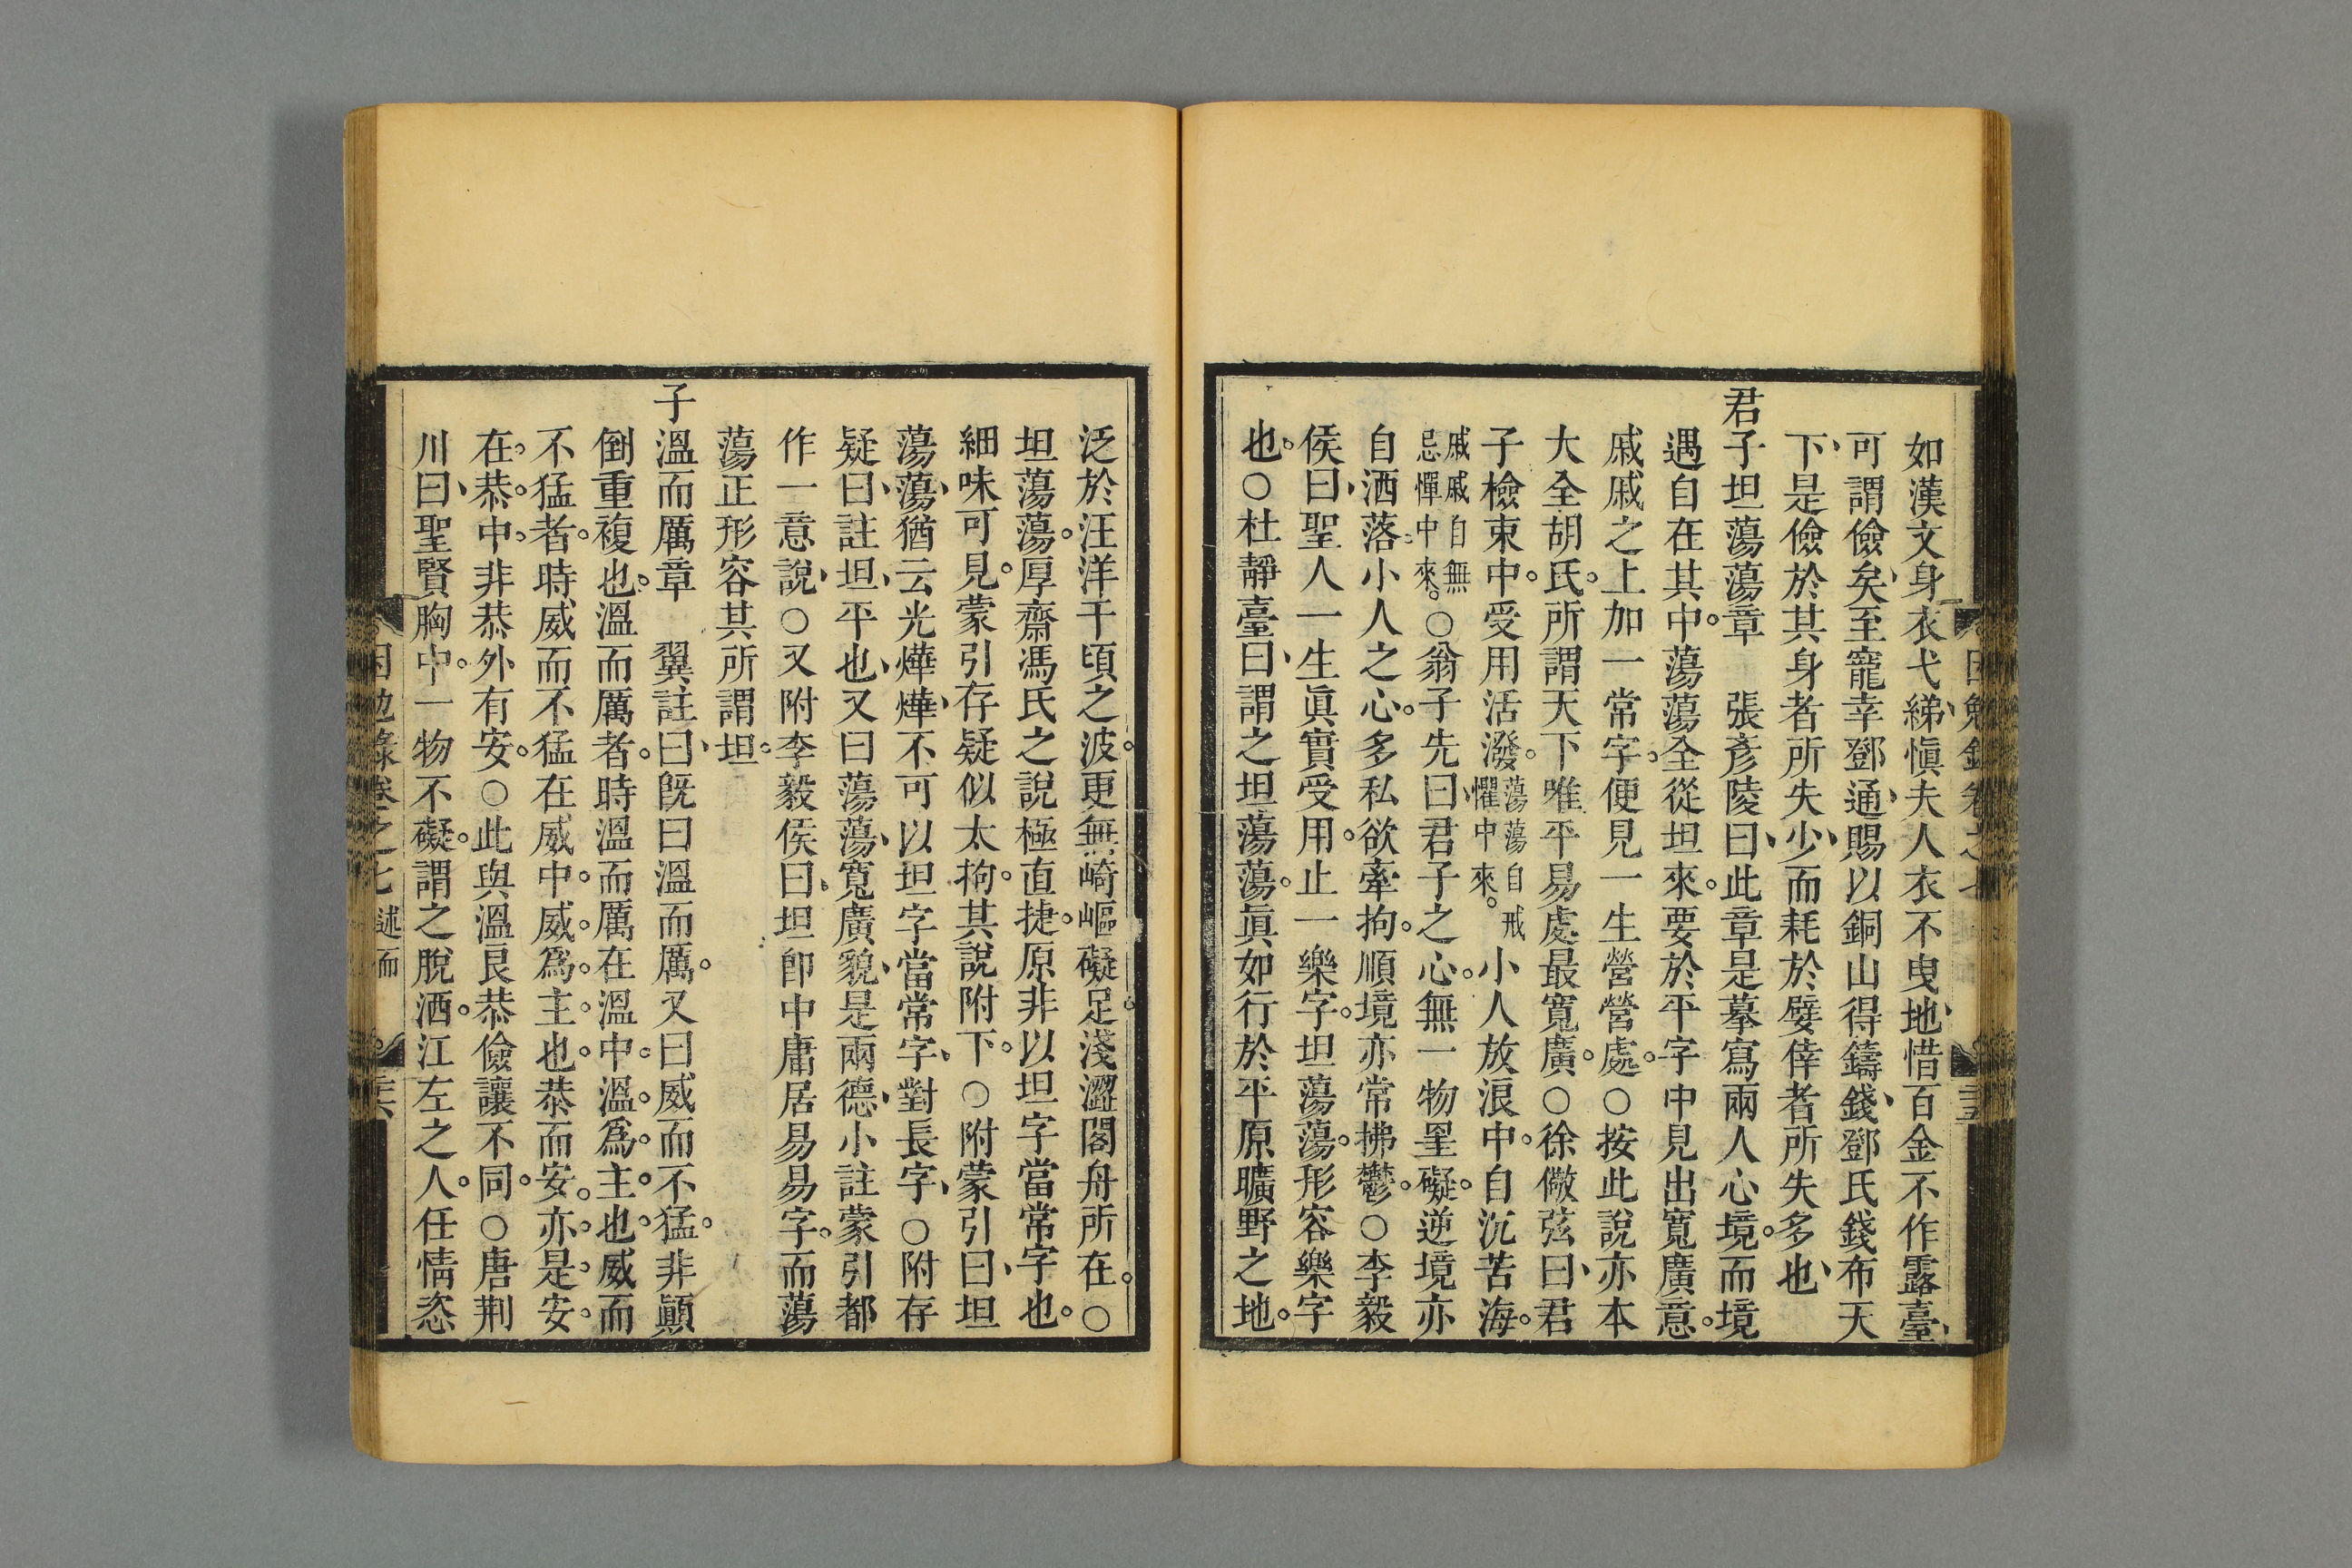 如漢文身衣弋綈愼夫人衣不曳地惜百金不作露臺
可謂儉矣至寵幸鄧通賜以銅山得鑄錢鄧氏錢布天
下是儉於其身者所失少而耗於嬖倖者所失多也
君子坦蕩蕩章　張彥陵曰此章是摹寫兩人心境而境
遇自在其中蕩蕩全從坦來要於平字中見出寬廣意
戚戚之上加一常字便見一生營營處○按此說亦本
大全胡氏所謂天下唯平易處最寬廣○徐儆弦曰君
子檢束中受用活潑蕩蕩自戒懼中來小人放浪中自沉苦海
戚戚自無忌憚中來○翁子先曰君子之心無一物罣礙逆境亦
自洒落小人之心多私欲牽拘順境亦常拂鬱○李毅
侯曰聖人一生眞實受用止一樂字坦蕩蕩形容樂字
也○杜靜臺曰謂之坦蕩蕩眞如行於平原曠野之地
泛於汪洋千頃之波更無崎嶇礙足淺澀閣舟所在○
坦蕩蕩厚齋馮氏之說極直捷原非以坦字當常字也
細味可見蒙引存疑似太拘其說附下○附蒙引曰坦
蕩蕩猶云光燁燁不可以坦字當常字對長字○附存
疑曰註坦平也又曰蕩蕩寬廣貌是兩德小註蒙引都
作一意說○又附李毅侯曰坦卽中庸居易易字而蕩
蕩正形容其所謂坦
子溫而厲章　翼註曰旣曰溫而厲又曰威而不猛非顚
倒重複也溫而厲者時溫而厲在溫中溫爲主也威而
不猛者時威而不猛在威中威爲主也恭而安亦是安
在恭中非恭外有安○此與溫良恭儉讓不同○唐荆
川曰聖賢胸中一物不礙謂之脫洒江左之人任情恣
困勉錄卷之七 述而